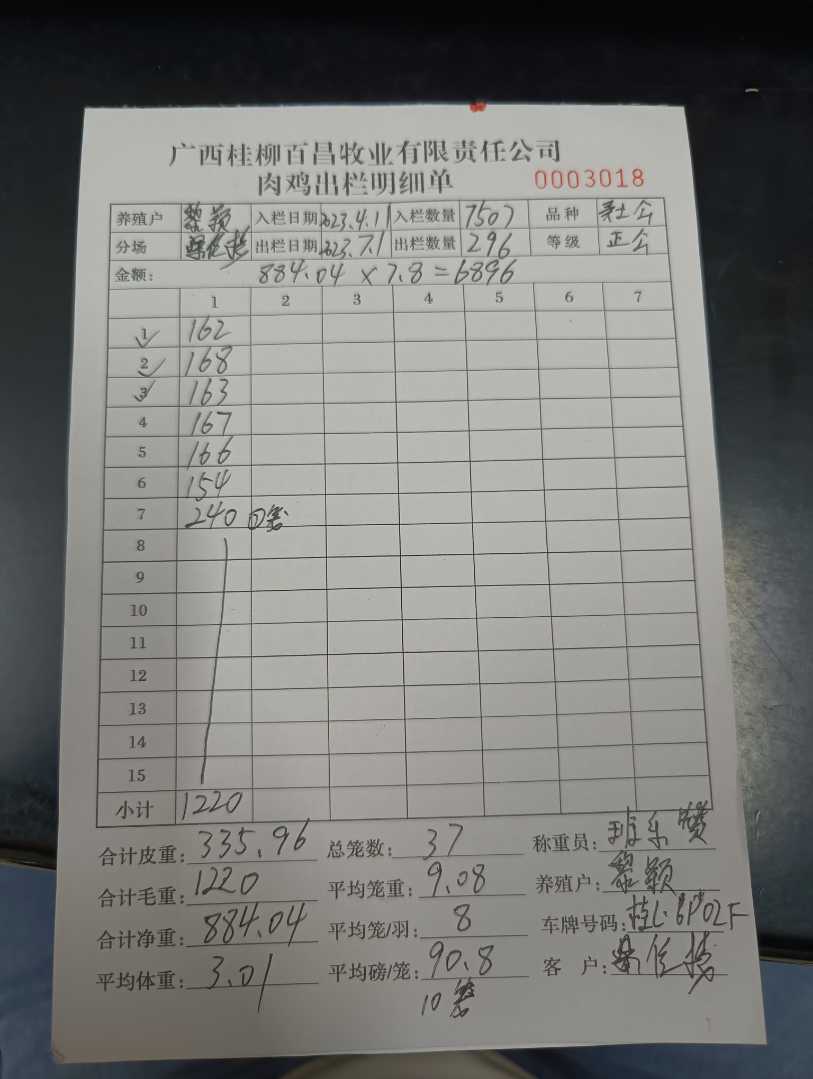 广西桂柳百昌牧业有限责任公司
肉鸡出栏明细单 0003018
养殖户 黎颖 入栏日期 2023.4.11 入栏数量 7507 品种 公
分场 出栏日期 2023.7.1 出栏数量 296 等级 正公
金额: 884.04 × 7.8 = 6896
1 2 3 4 5 6 7
1 162
2 168
3 163
4 167
5 166
6 154
7 240
8
9
10
11
12
13
14
15
小计 1220
合计皮重: 335.96 总笼数: 37 称重员: 班乐赞
合计毛重: 1220 平均笼重: 9.08 养殖户: 黎颖
合计净重: 884.04 平均笼/羽: 8 车牌号码: 桂L·6P02F
平均体重: 3.01 平均磅/笼: 90.8 客 户:
10